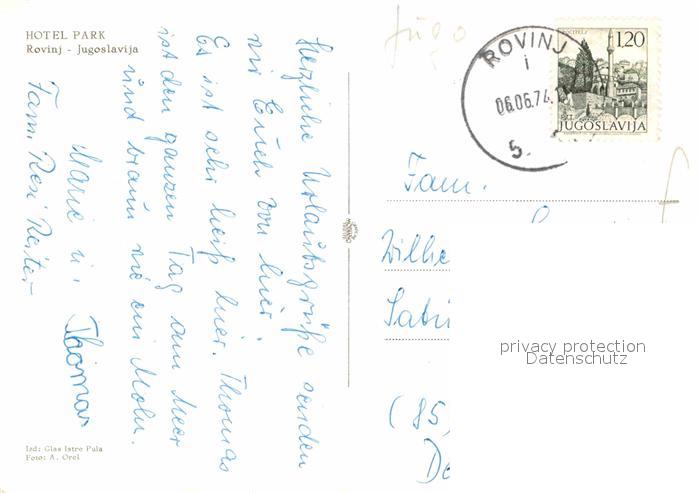 HOTEL PARK
Rovinj - Jugoslavija
Herzliche Urlaubsgrüße senden
wir Euch von hier.
Es ist sehr heiß hier. Thomas
ist den ganzen Tag am Meer
und braun wie ein Mohr.
Marie u. Thomas
Fam. Resi Reiter
Izd: Glas Istre Pula
Foto: A. Orel
Jugo
ROVINJ
1
06.06.74.
5.
POČITELJ
1,20
JUGOSLAVIJA
Fam.
Wilhe
Sabi
(85
De
privacy protection
Datenschutz